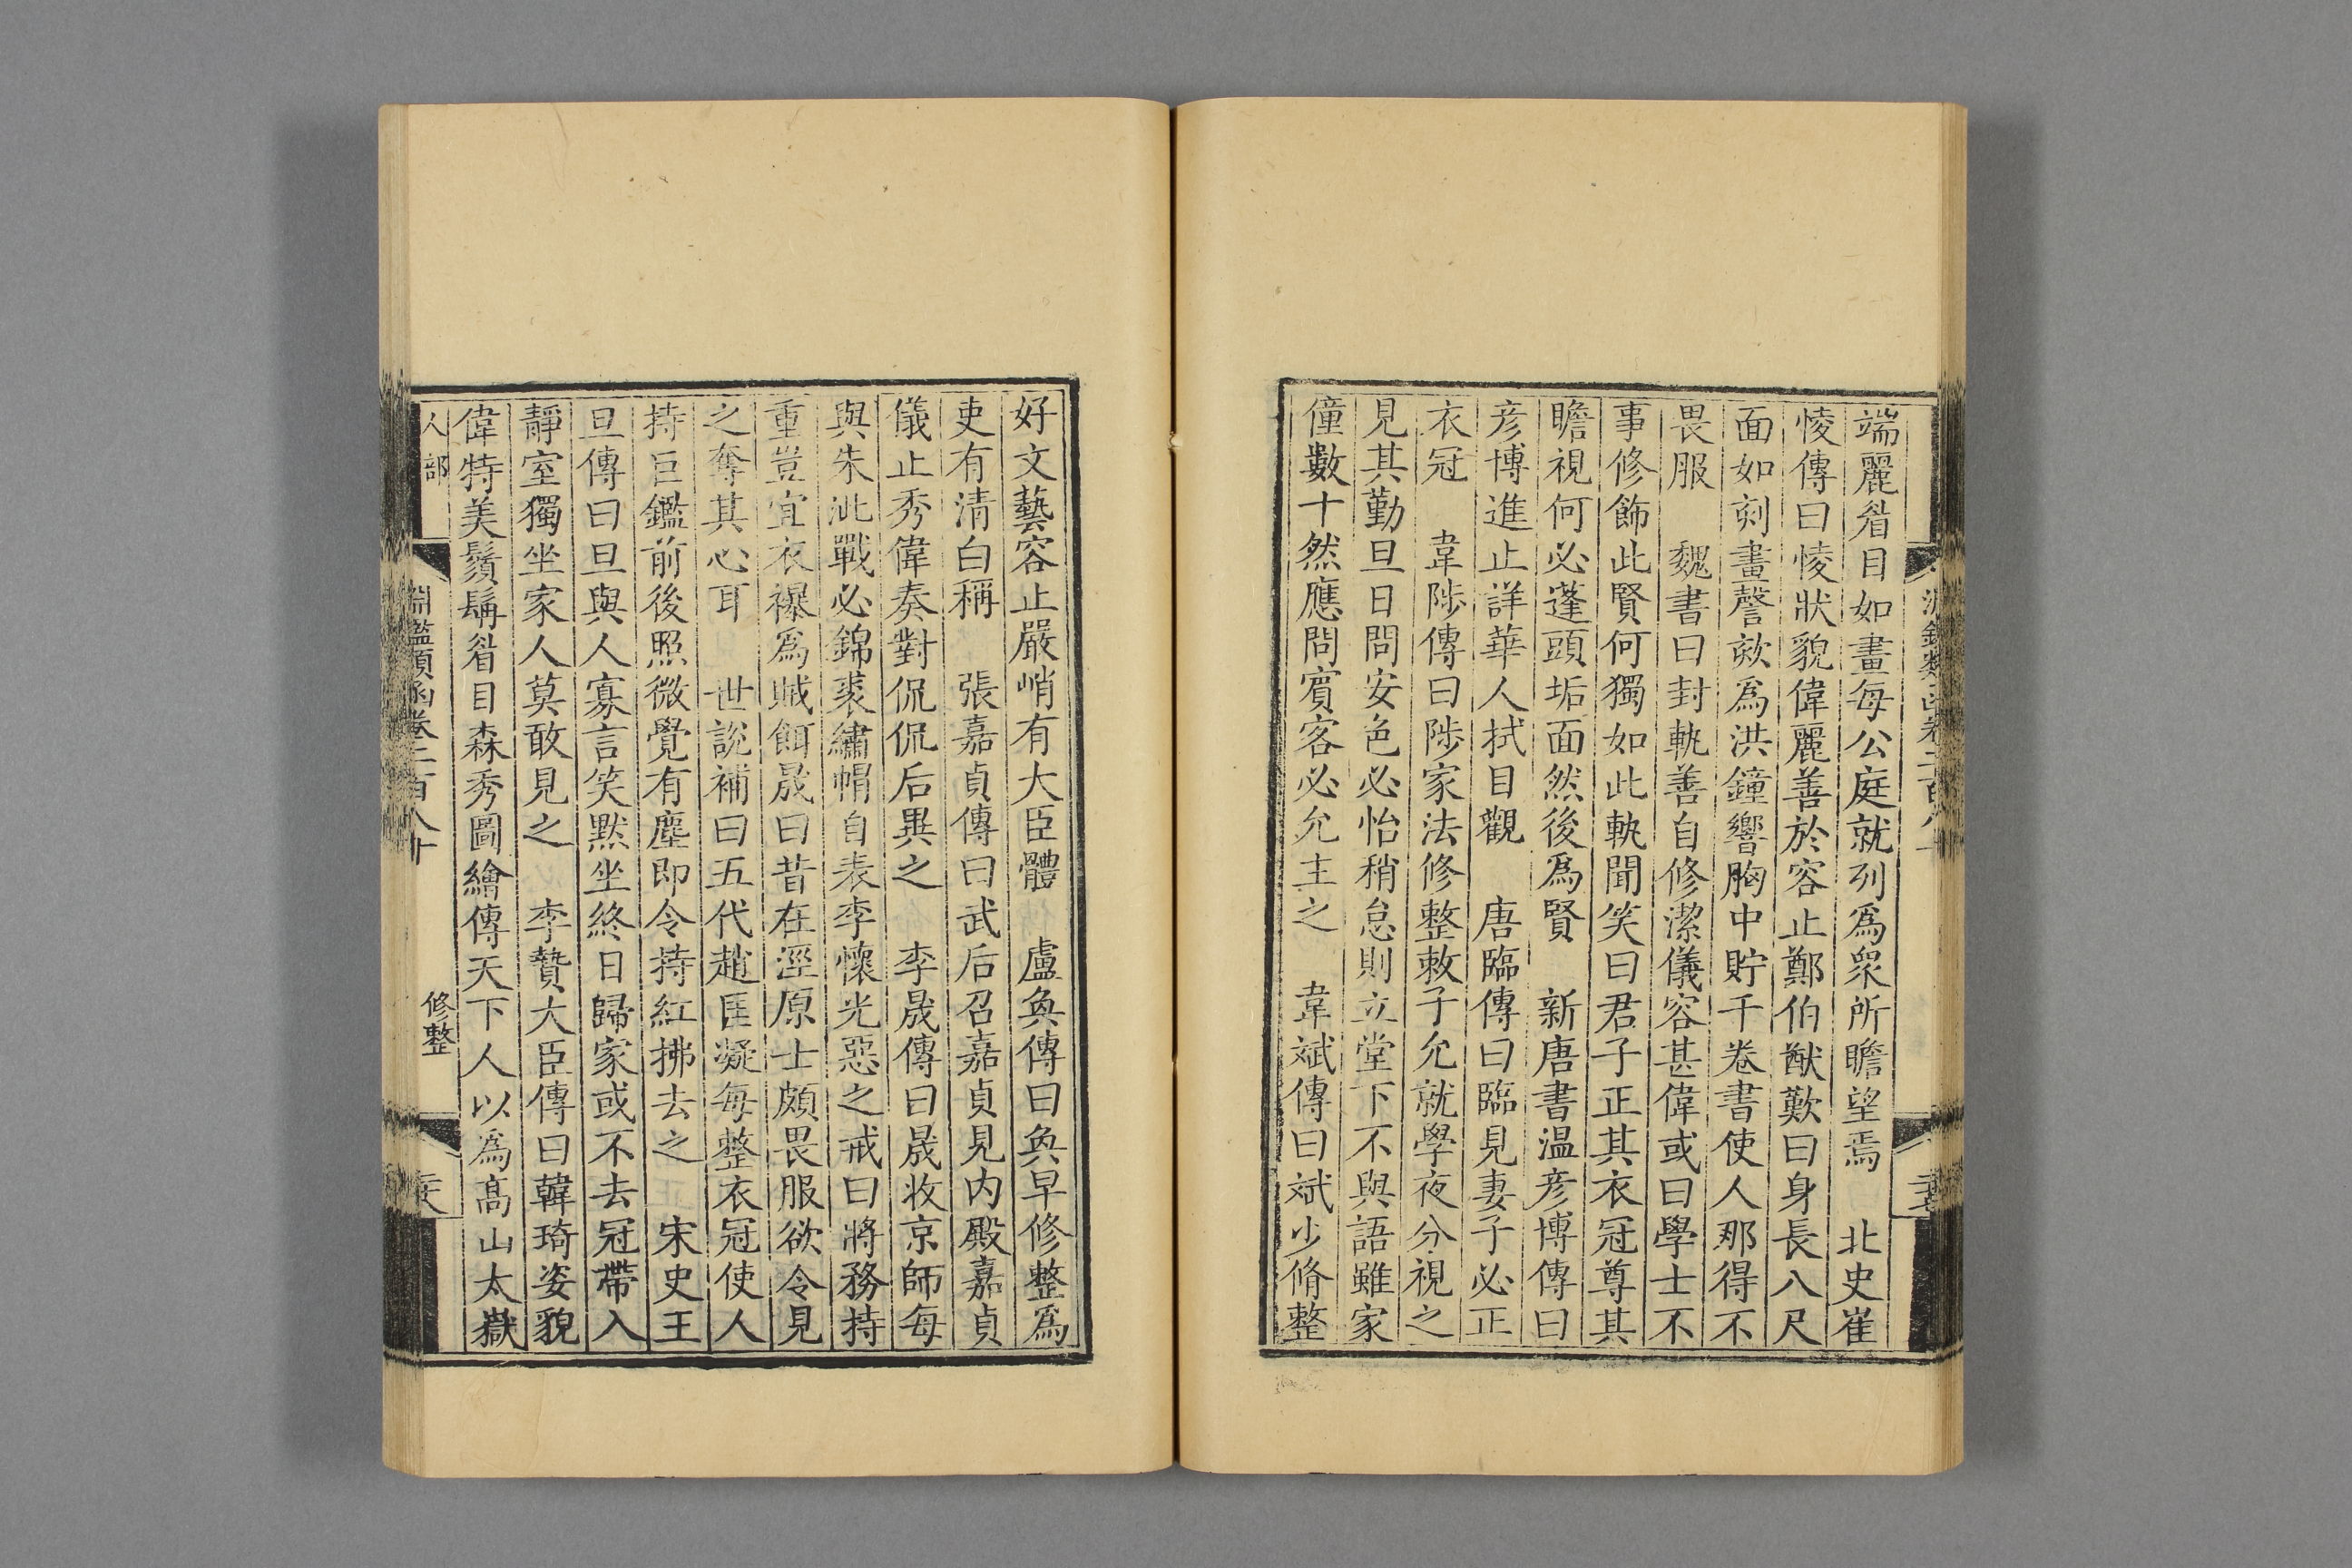 端麗眉目如畫每公庭就列爲衆所瞻望焉　北史崔
㥄傳曰㥄狀貌偉麗善於容止鄭伯猷歎曰身長八尺
面如刻畫謦欬爲洪鐘響胸中貯千卷書使人那得不
畏服　魏書曰封軌善自修潔儀容甚偉或曰學士不
事修飾此賢何獨如此軌聞笑曰君子正其衣冠尊其
瞻視何必蓬頭垢面然後爲賢　新唐書温彦博傳曰
彦博進止詳華人拭目觀　唐臨傳曰臨見妻子必正
衣冠　韋陟傳曰陟家法修整敕子允就學夜分視之
見其勤旦日問安色必怡稍怠則立堂下不與語雖家
僮數十然應問賓客必允主之　韋斌傳曰斌少脩整
好文藝容止嚴峭有大臣體　盧奐傳曰奐早修整爲
吏有清白稱　張嘉貞傳曰武后召嘉貞見内殿嘉貞
儀止秀偉奏對侃侃后異之　李晟傳曰晟收京師每
與朱泚戰必錦裘繡帽自表李懷光惡之戒曰將務持
重豈宜衣襮爲賊餌晟曰昔在涇原士頗畏服欲令見
之奪其心耳　世說補曰五代趙匡凝每整衣冠使人
持巨鑑前後照微覺有塵即令持紅拂去之　宋史王
旦傳曰旦與人寡言笑默坐終日歸家或不去冠帶入
靜室獨坐家人莫敢見之　李贄大臣傳曰韓琦姿貌
偉特美鬚髯眉目森秀圖繪傳天下人以爲高山太嶽
人部　淵鑑類函卷二百八十　修整